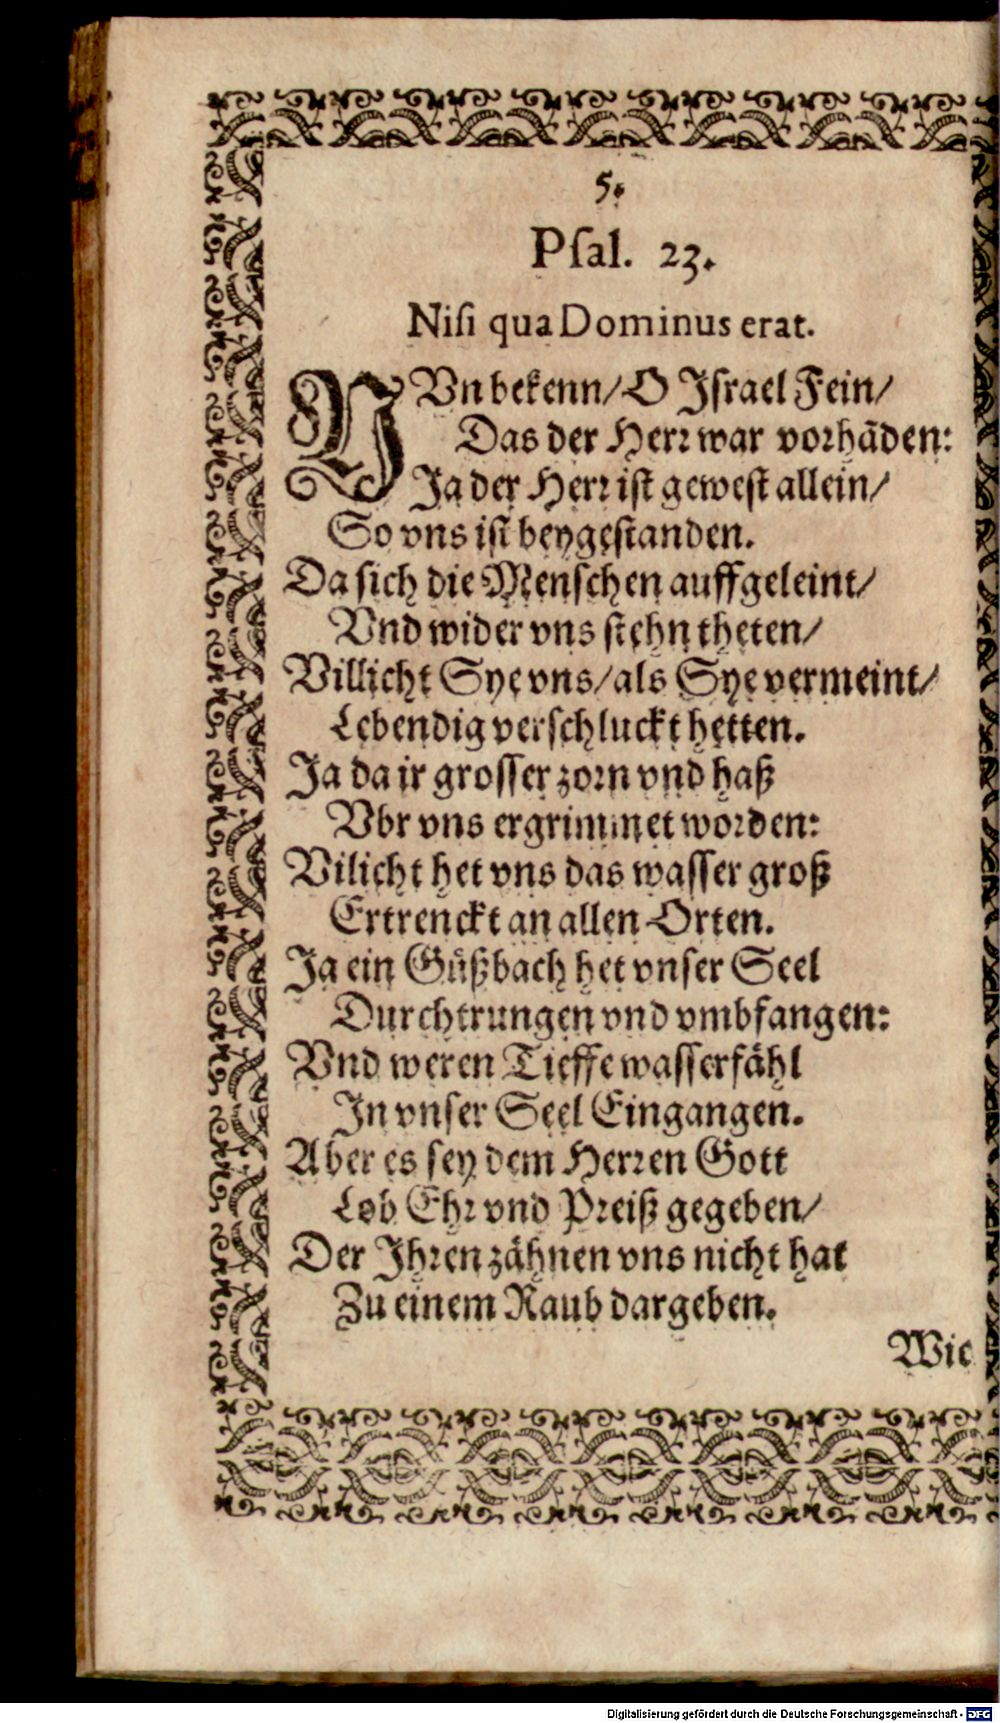 5.
Psal. 23.
Nisi qua Dominus erat.
NVn bekenn/ O Israel Fein/
Das der Herr war vorhãden:
Ja der Herr ist gewest allein/
So vns ist beygestanden.
Da sich die Menschen auffgeleint/
Vnd wider vns stehn theten/
Villicht Sye vns/ als Sye vermeint/
Lebendig verschluckt hetten.
Ja da ir grosser zorn vnd haß
Vbr vns ergrimmet worden:
Vilicht het vns das wasser groß
Ertrenckt an allen Orten.
Ja ein Güßbach het vnser Seel
Durchtrungen vnd vmbfangen:
Vnd weren Tieffe wasserfähl
In vnser Seel Eingangen.
Aber es sey dem Herren Gott
Lob Ehr vnd Preiß gegeben/
Der Ihren zähnen vns nicht hat
Zu einem Raub dargeben.
Wie
Digitalisierung gefördert durch die Deutsche Forschungsgemeinschaft - DFG